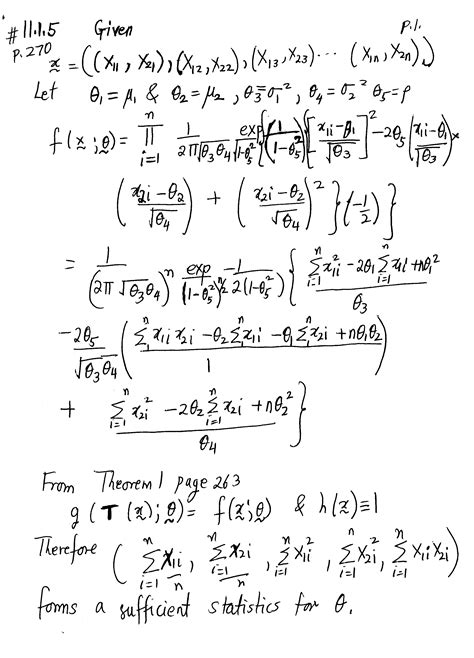 #11.1.5 Given P.1.
P.270
x = ((X11, X21), (X12, X22), (X13, X23) ... (X1n, X2n))
Let θ1 = μ1 & θ2 = μ2, θ3 = σ1², θ4 = σ2² θ5 = ρ
f(x; θ) = ∏_{i=1}^{n} 1/(2π√(θ3θ4) √(1-θ5²)) exp{ (1/(1-θ5²)) { [(x1i-θ1)/√θ3]² - 2θ5 ((x1i-θ1)/√θ3) ×
((x2i-θ2)/√θ4) + ((x2i-θ2)/√θ4)² } (-1/2) }
= 1/(2π√(θ3θ4))^n exp/(1-θ5²)^{n/2} -1/(2(1-θ5²)) { (∑_{i=1}^{n} x1i² - 2θ1 ∑_{i=1}^{n} x1i + nθ1²)/θ3
-2θ5/√(θ3θ4) ( (∑_1^n x1i x2i - θ2 ∑_1^n x1i - θ1 ∑_1^n x2i + nθ1θ2)/1 )
+ (∑_{i=1}^{n} x2i² - 2θ2 ∑_{i=1}^{n} x2i + nθ2²)/θ4 }
From Theorem 1 page 263
g(T(x); θ) = f(x; θ) & h(x) ≡ 1
Therefore ( ∑_{i=1}^{n} X1i/n, ∑_{i=1}^{n} X2i/n, ∑_{i=1}^{n} X1i², ∑_{i=1}^{n} X2i², ∑_{i=1}^{n} X1i X2i )
forms a sufficient statistics for θ.